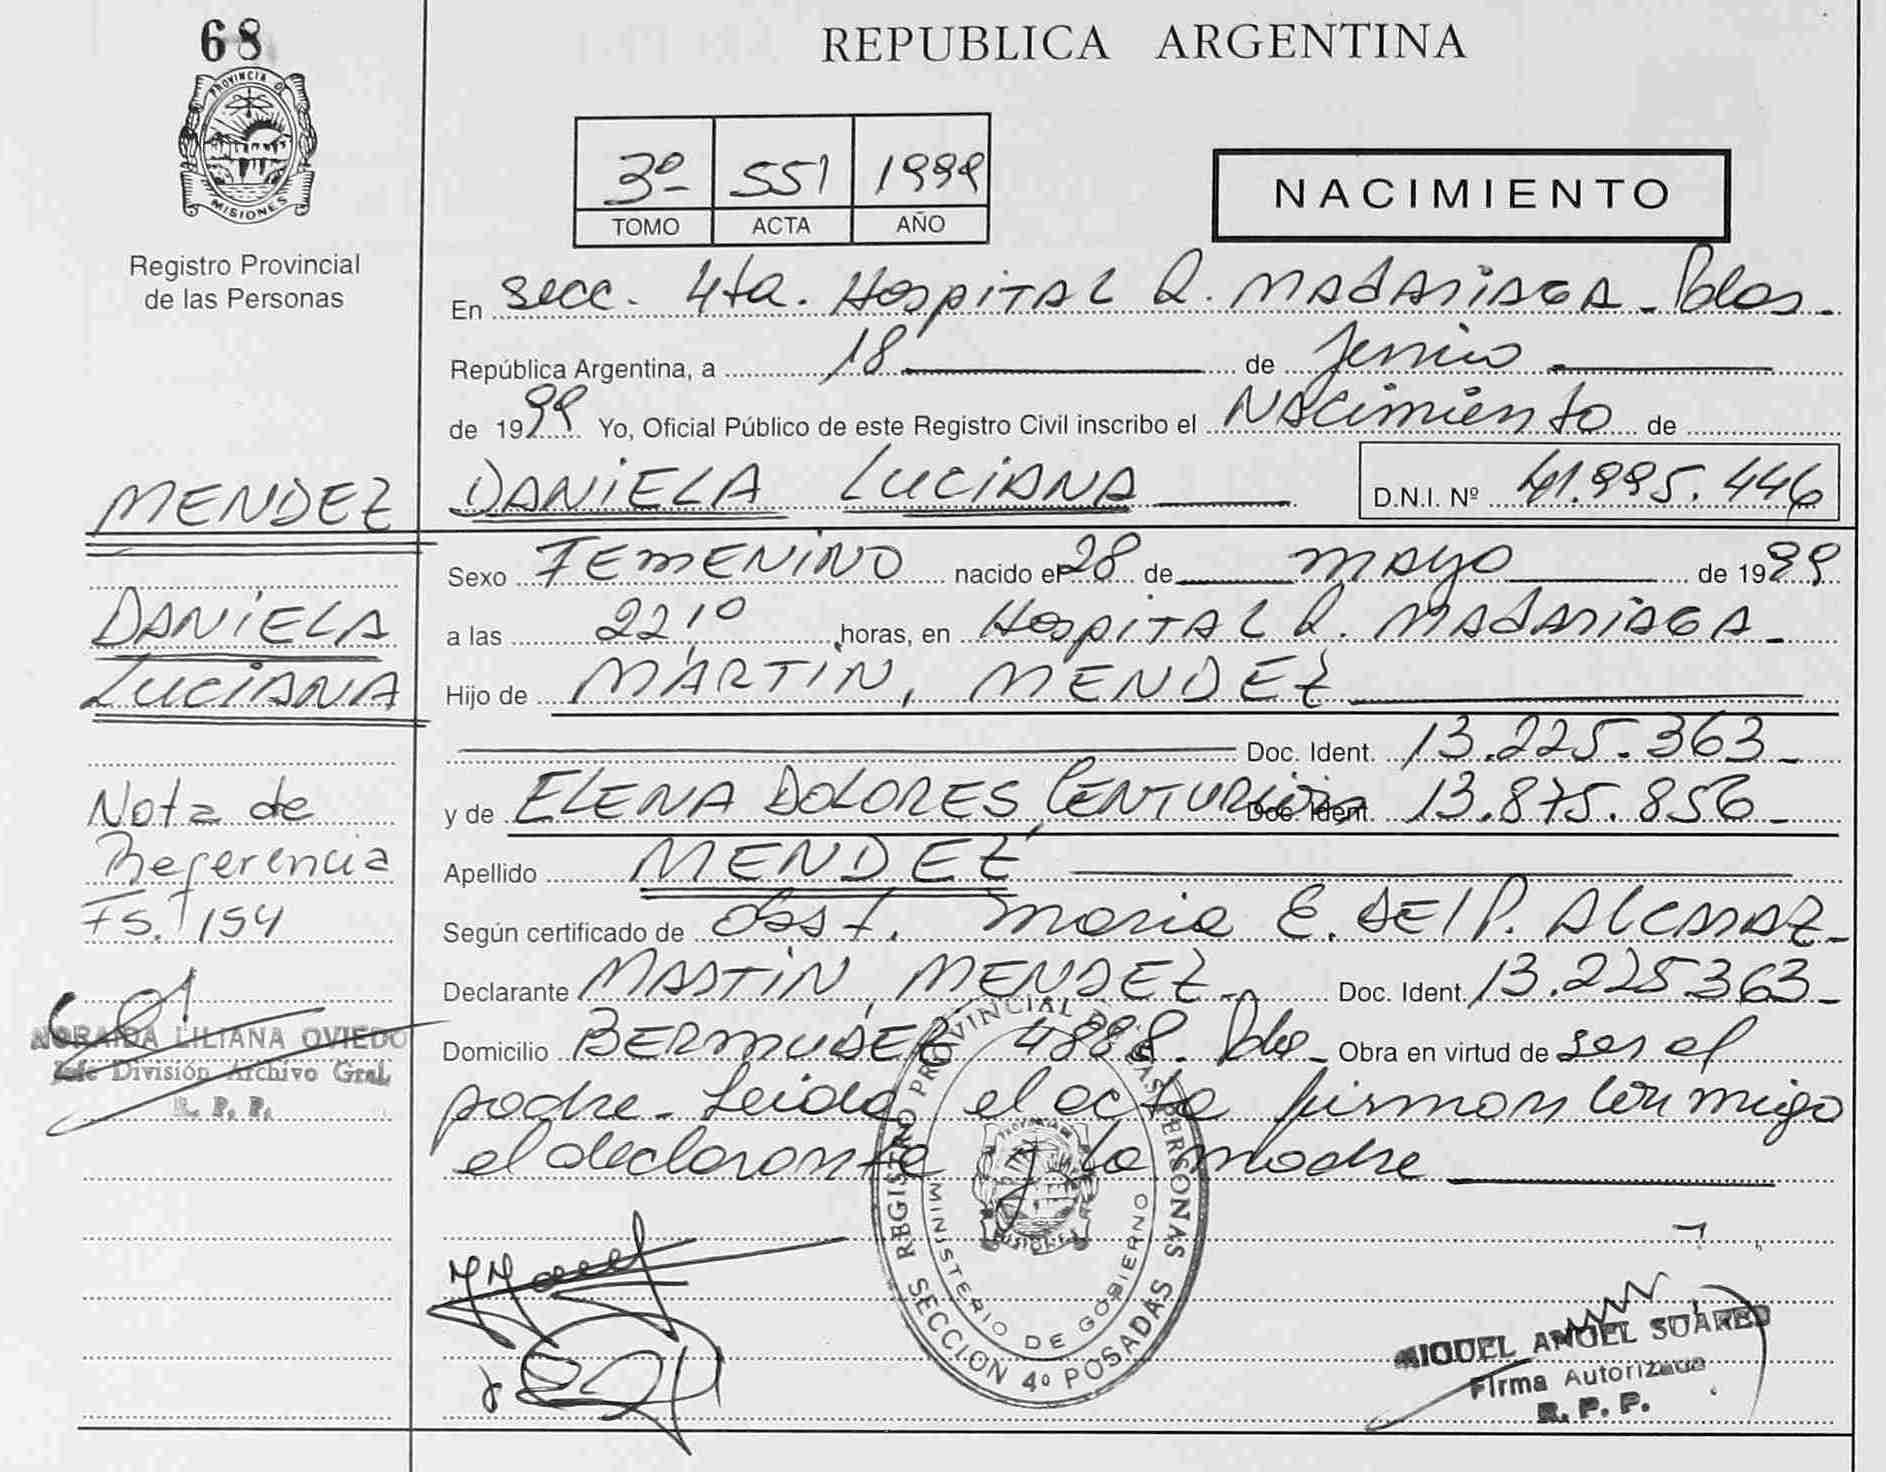 68
REPUBLICA ARGENTINA
PROVINCIA D
MISIONES
Registro Provincial
de las Personas
3º 551 1999
TOMO ACTA AÑO
NACIMIENTO
En secc. 4ta. Hospital R. Madariaga - Pdas.
República Argentina, a 18 de Junio
de 1999 Yo, Oficial Público de este Registro Civil inscribo el Nacimiento de
MENDEZ
DANIELA LUCIANA D.N.I. Nº 41.995.446
Sexo FEMENINO nacido el 28 de mayo de 1999
DANIELA
LUCIANA
a las 22,10 horas, en Hospital R. Madariaga -
Hijo de MARTIN, MENDEZ
Doc. Ident. 13.225.363 -
y de ELENA DOLORES, CENTURION Doc. Ident. 13.875.856 -
Apellido MENDEZ
Nota de
Referencia
Fs. 154
Según certificado de Obst. Maria E. del P. Alcaraz -
Declarante MARTIN, MENDEZ - Doc. Ident. 13.225363 -
Domicilio BERMUDEZ 4888. Pdas - Obra en virtud de ser el
padre - Leida el acta firman conmigo
el declarante y la madre
NORAIDA LILIANA OVIEDO
Jefe División Archivo Gral.
R. P. P.
REGISTRO PROVINCIAL DE LAS PERSONAS
MINISTERIO DE GOBIERNO
SECCION 4º POSADAS
MISIONES
MIGUEL ANGEL SUAREZ
Firma Autorizada
R. P. P.